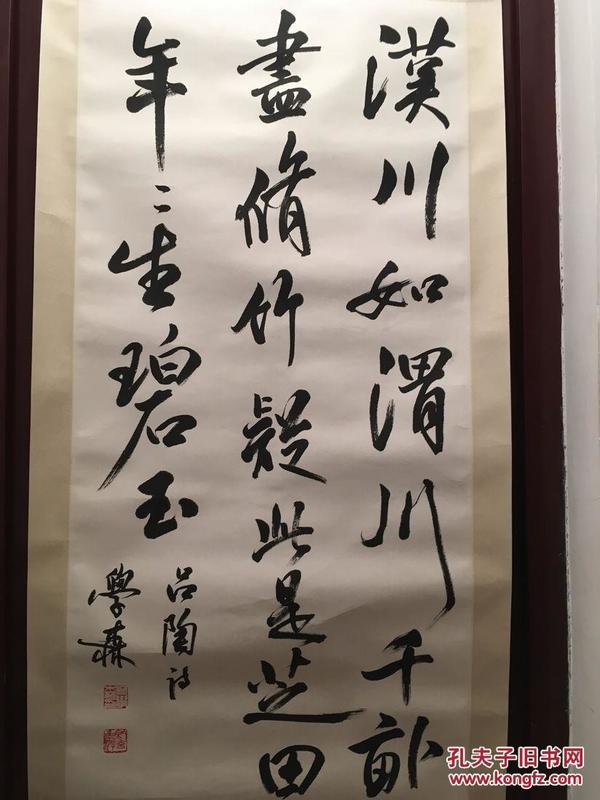 漢川如渭川千畝
盡脩竹疑此是芝田
年〻生碧玉
吕陶诗
學森
孔夫子旧书网
www.kongfz.com